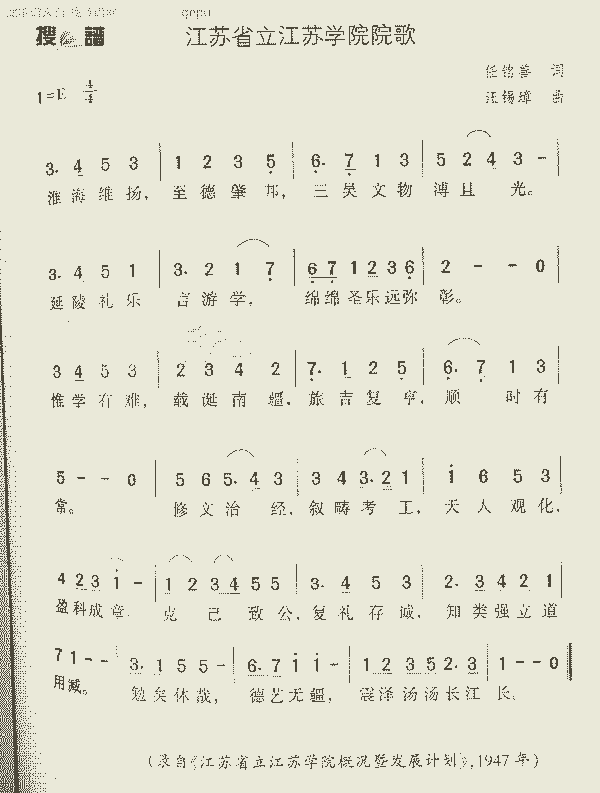 qupu
搜 谱
江苏省立江苏学院院歌
任铭善 词
汪锡璋 曲
1=E 4/4
3. 4 5 3 | 1 2 3 5 | 6. 7 1 3 | 5 2 4 3 - |
淮海维扬，至德肇邦，三吴文物溥且光。
3. 4 5 1 | 3. 2 1 7 | 6 7 1 2 3 6 | 2 - - 0
延陵礼乐言游学，绵绵圣乐远弥彰。
3 4 5 3 | 2 3 4 2 | 7. 1 2 5 | 6. 7 1 3
惟学有难，载诞南疆，旅吉复亨，顺时有
5 - - 0 | 5 6 5. 4 3 | 3 4 3. 2 1 | i 6 5 3
常。修文治经，叙畴考工，天人观化，
4 2 3 i - | 1 2 3 4 5 5 | 3. 4 5 3 | 2. 3 4 2 1
盈科成章。克己致公，复礼存诚，知类强立道
7 1 - - | 3. 1 5 5 - | 6. 7 i i - | 1 2 3 5 2. 3 | 1 - - 0
用臧。勉矣休哉，德艺无疆，震泽汤汤长江长。
（录自《江苏省立江苏学院概况暨发展计划》，1947年）